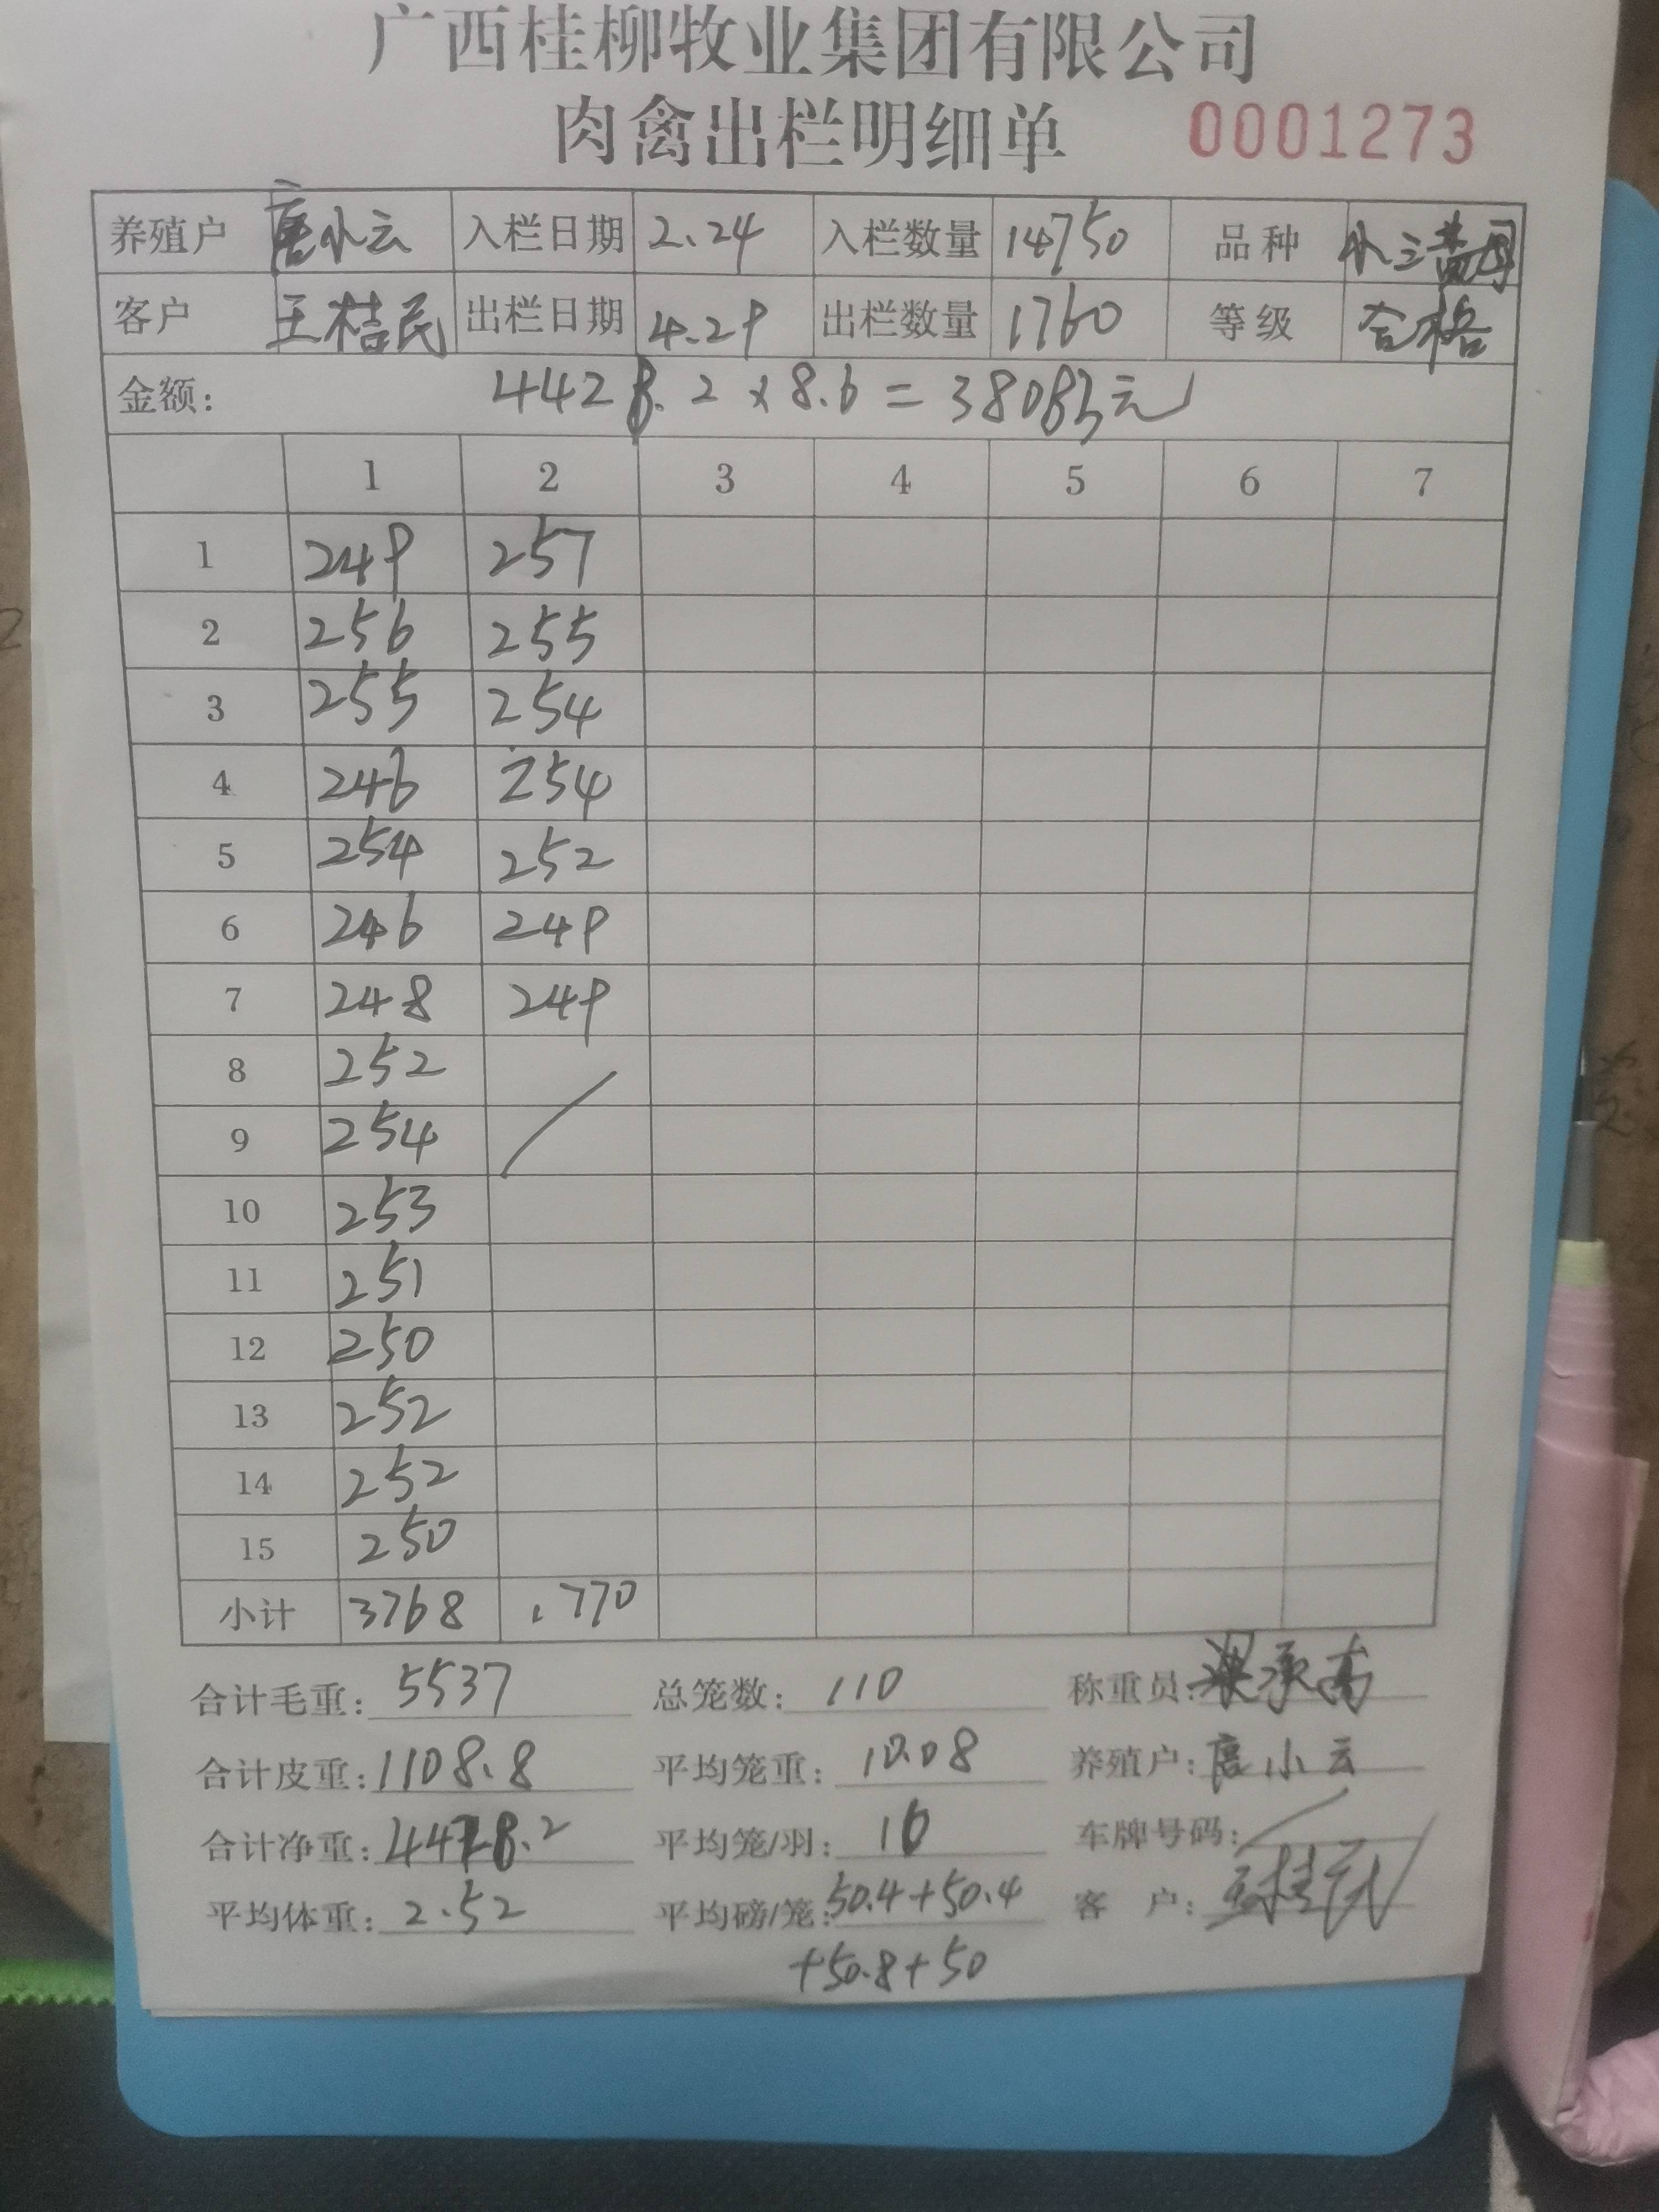 广西桂柳牧业集团有限公司
肉禽出栏明细单 0001273
养殖户 唐小云 入栏日期 2.24 入栏数量 14750 品种 小三
客户 王桂民 出栏日期 4.29 出栏数量 1760 等级 合格
金额: 4428.2×8.6=38083元
1 2 3 4 5 6 7
1 249 257
2 256 255
3 255 254
4 246 254
5 254 252
6 246 249
7 248 249
8 252
9 254
10 253
11 251
12 250
13 252
14 252
15 250
小计 3768 1770
合计毛重: 5537 总笼数: 110 称重员: 梁承高
合计皮重: 1108.8 平均笼重: 10.08 养殖户: 唐小云
合计净重: 4428.2 平均笼/羽: 16 车牌号码:
平均体重: 2.52 平均磅/笼: 50.4+50.4 客户: 王桂民
+50.8+50